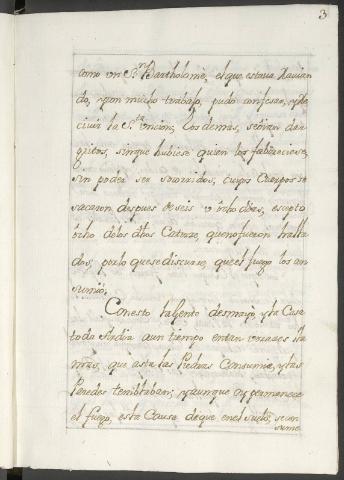 3
como un Sn. Bartholomè, el que estava Raviando
do, y con mucho trabajo, pudo confesar, y Re
civir la Sta. Uncion; Los demas, se oìan dar
gritos, sin que hubiese quien los faboreciese,
sin poder ser socorridos, cuyos Cuerpos se
sacaron despues de seis ù ocho dias, escepto
ocho de los dhos Catorze, que no fueron halla
dos, por lo que se discurre, que el fuego los con
sumiò;
Con esto la Jente desmayò, y la Casa
toda Ardia a un tiempo en tan voraces lla
mas, que asta las Piedras Consumia, y las
Paredes temblaban; y aunque oy permanece
el fuego, esta Causa de que en el suelo, se con
sume